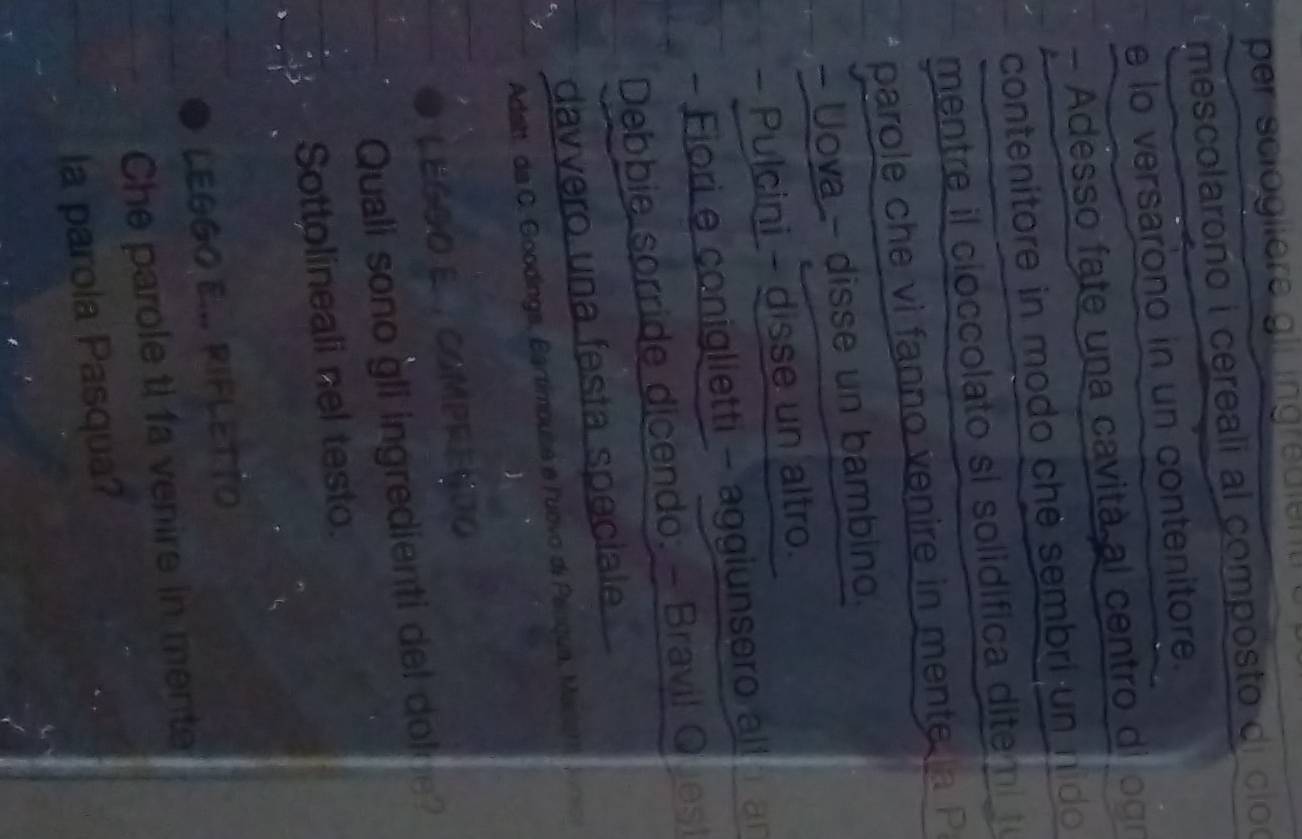 per sciogliere gli ingredienti
mescolarono i cereali al composto di cioc
e lo versarono in un contenitore.
- Adesso fate una cavità al centro di ogn
contenitore in modo che sembri un nido
mentre il cioccolato si solidifica ditemi
parole che vi fanno venire in mente la Pa
- Uova - disse un bambino.
- Pulcini - disse un altro.
- Fiori e coniglietti - aggiunsero
Debbie sorride dicendo: - Bravi! Quest
davvero una festa speciale.
Adatt. da C. Goodings, e l'uovo di Pasqua,
LEGGO E... COMPRENDO
Quali sono gli ingredienti del dolce?
Sottolineali nel testo.
LEGGO E... RIFLETTO
Che parole ti fa venire in mente
la parola Pasqua?